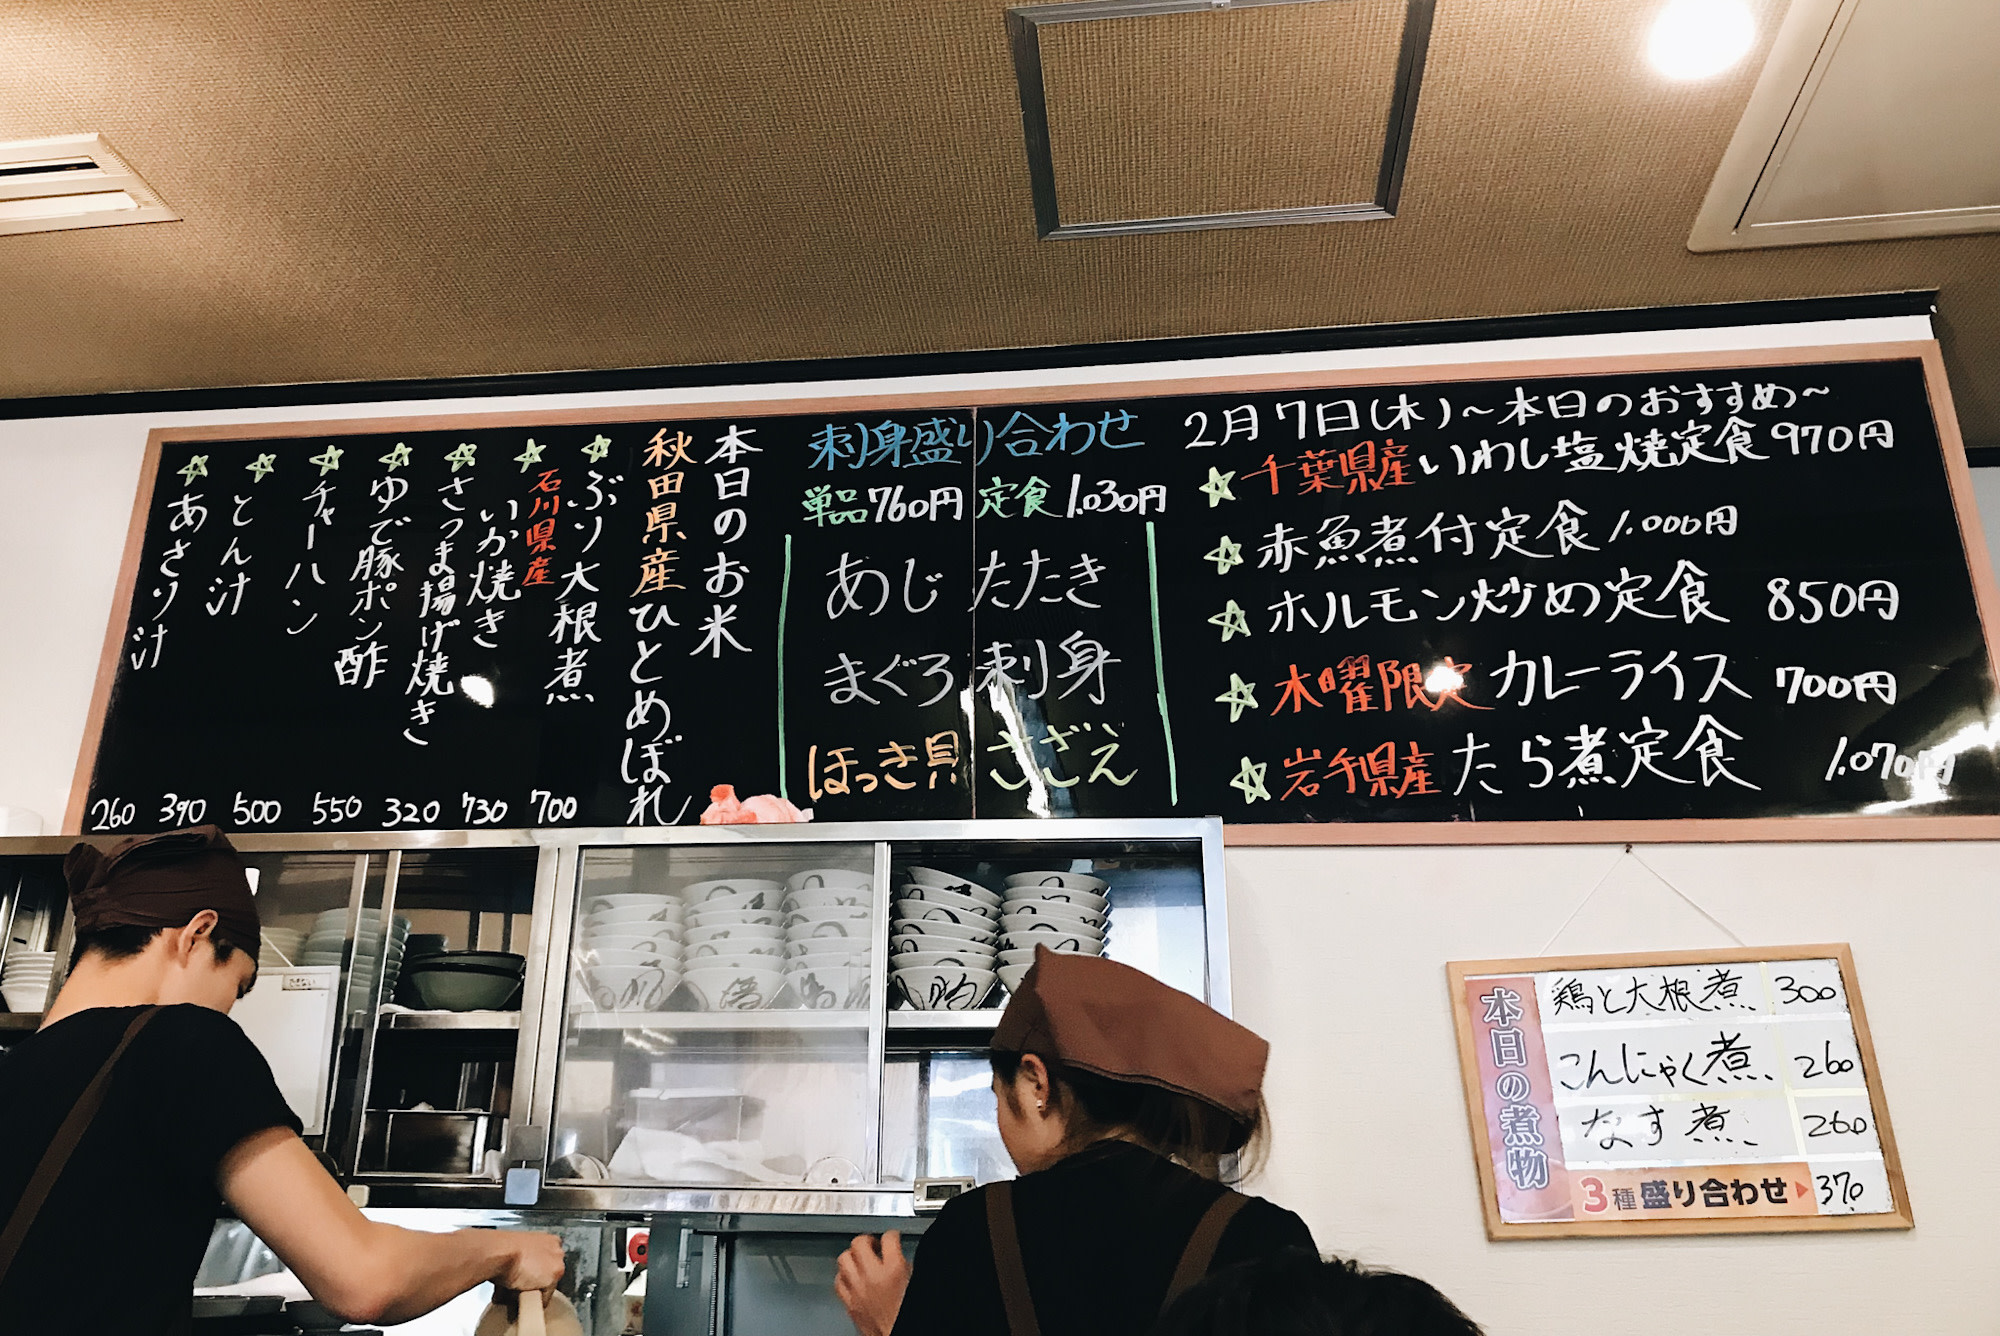 2月7日(木)～本日のおすすめ～
千葉県産いわし塩焼定食 970円
赤魚煮付定食 1.000円
ホルモン炒め定食 850円
木曜限定 カレーライス 700円
岩手県産 たら煮定食 1.070円
刺身盛り合わせ
単品760円 定食1.030円
あじ たたき
まぐろ 刺身
ほっき貝 さざえ
本日のお米
秋田県産ひとめぼれ
ぶり大根煮 700
石川県産
いか焼き 730
さつま揚げ焼き 320
ゆで豚ポン酢 550
チャーハン 500
とん汁 390
あさり汁 260
本日の煮物
鶏と大根煮 300
こんにゃく煮 260
なす煮 260
3種盛り合わせ 370